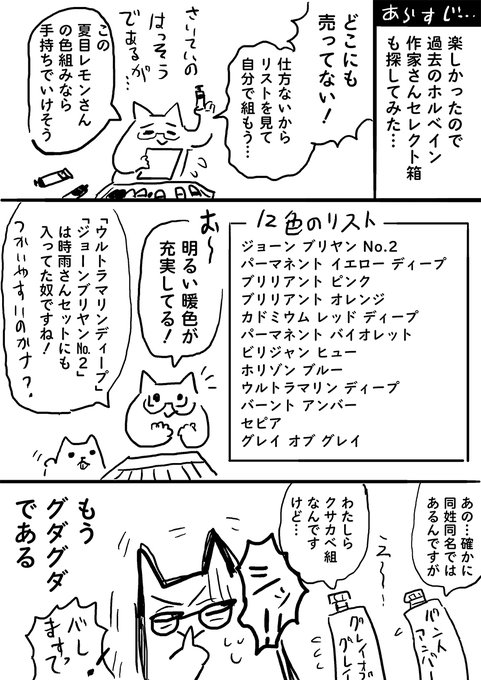 あらすじ…
楽しかったので
過去のホルベイン
作家さんセレクト箱
も探してみた…
どこにも
売ってない!
仕方ないから
リストを見て
自分で組もう…
さいていの
はっそう
であるが…
この
夏目レモンさん
の色組みなら
手持ちでいけそう
12色のリスト
ジョーン ブリヤン No.2
パーマネント イエロー ディープ
ブリリアント ピンク
ブリリアント オレンジ
カドミウム レッド ディープ
パーマネント バイオレット
ビリジャン ヒュー
ホリゾン ブルー
ウルトラマリン ディープ
バーント アンバー
セピア
グレイ オブ グレイ
お〜
明るい暖色が
充実してる!
「ウルトラマリンディープ」
「ジョーンブリヤン№2」
は時雨さんセットにも
入ってた奴ですね!
つかいやすいのかナ?
あの…確かに
同姓同名では
あるんですが
わたしら
クサカベ組
なんです
けど…
バーント
アンバー
グレイオブ
グレイ
もう
グダグダ
である
バレ
ますって!